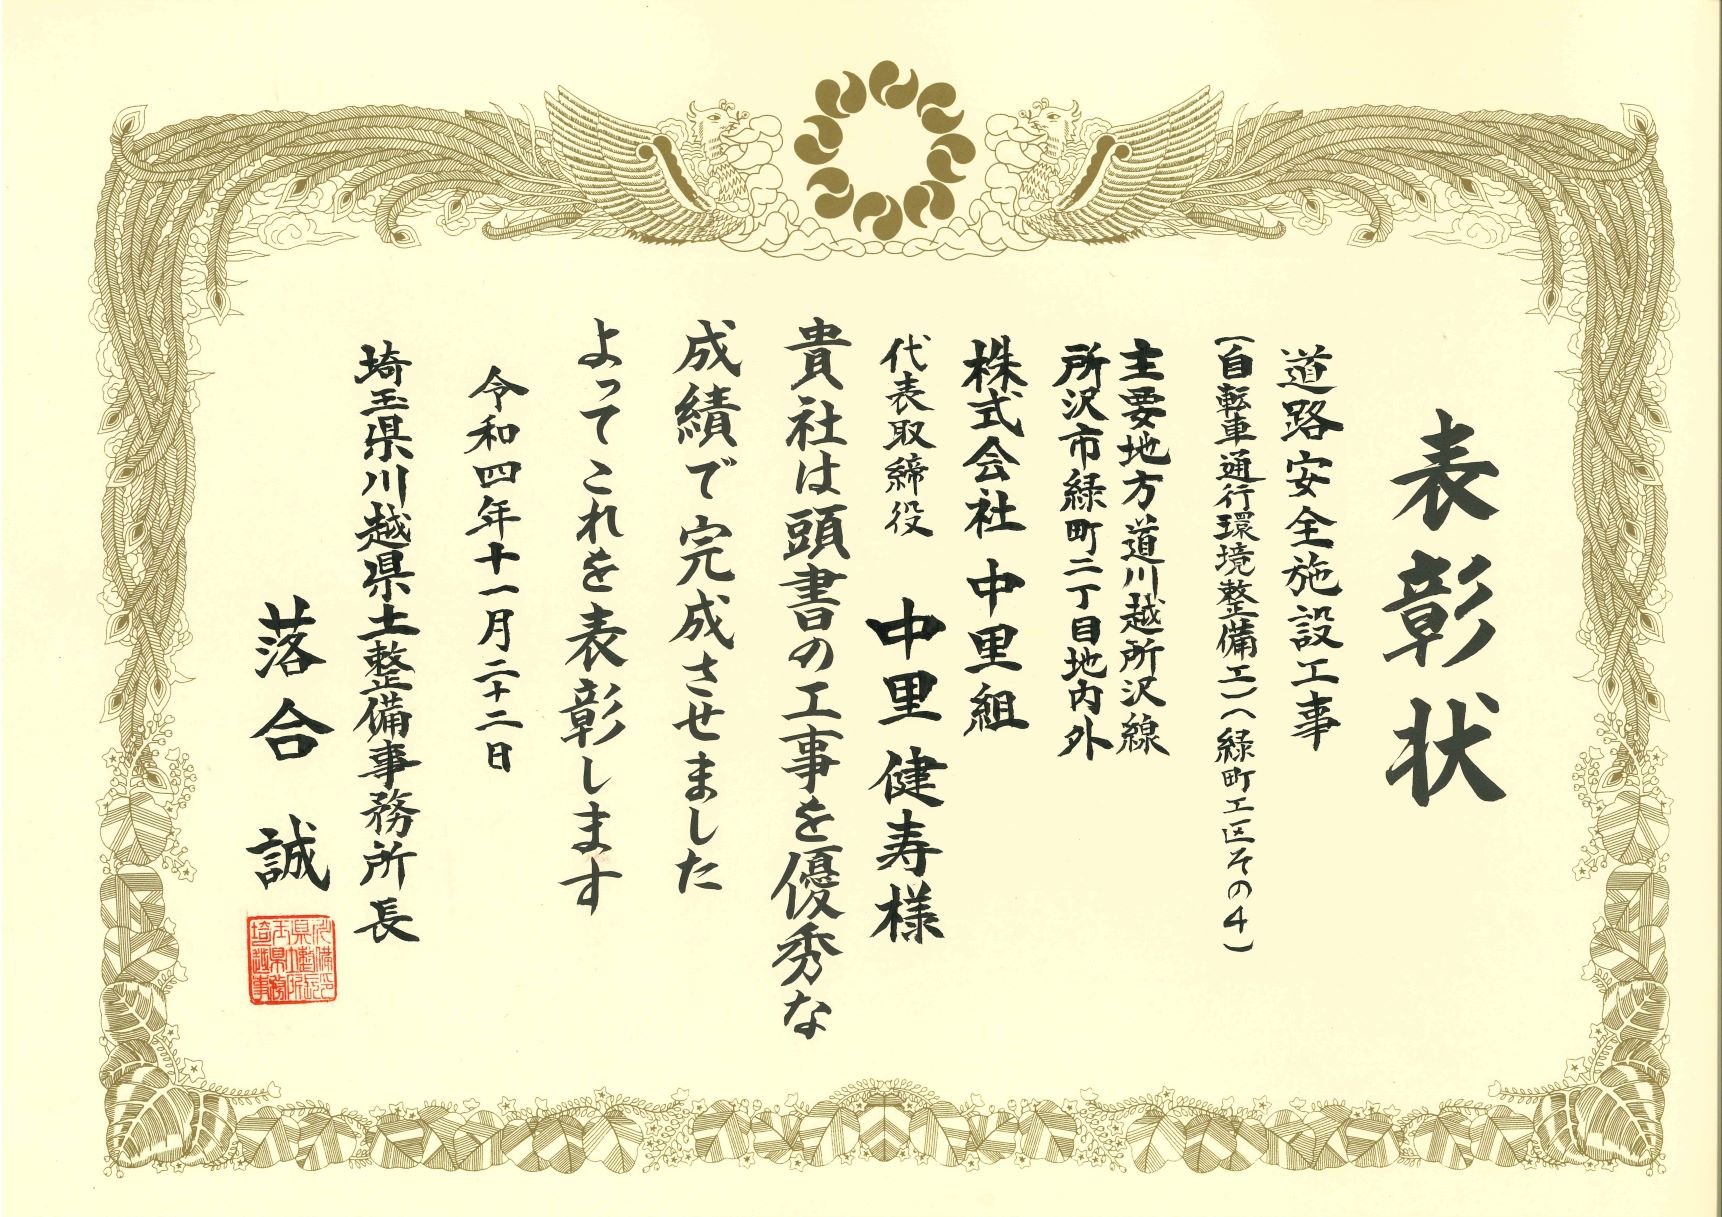 表彰状
道路安全施設工事
(自転車通行環境整備工)(緑町工区その4)
主要地方道川越所沢線
所沢市緑町二丁目地内外
株式会社 中里組
代表取締役 中里健寿様
貴社は頭書の工事を優秀な
成績で完成させました
よってこれを表彰します
令和四年十一月二十二日
埼玉県川越県土整備事務所長
落合誠